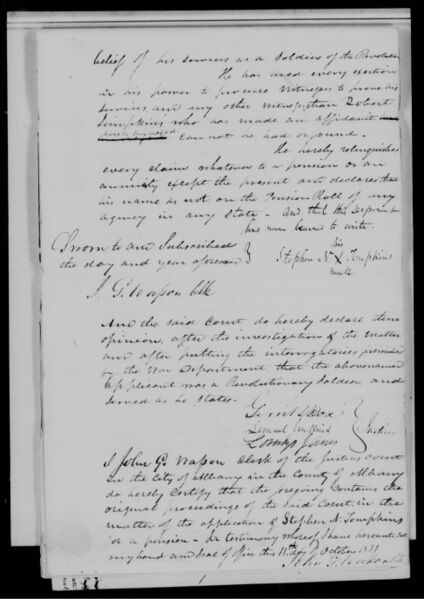 belief of his services as a Soldier of the Revolution
He has used every exertion
in his power to procure witnesses to prove his
services and any other witness than Robert
Tompkins who has made an affidavit
hereto annexed can not be had or found.
He hereby relinquishes
every claim whatever to a pension or an
annuity except the present and declares that
his name is not on the Pension Roll of any
agency in any State. And that this Deponent
has never learnt to write.
Sworn to and Subscribed
the day and year aforesaid
his
Stephen N. X Tompkins
mark
J. G. Wasson Clk
And the said Court do hereby declare their
opinion, after the investigation of the matter
and after putting the interrogatories prescribed
by the War Department that the abovenamed
applicant was a Revolutionary Soldier and
served as he States.
Gerrit L Dox
Lemuel Jenkins
Justices
I John G. Wasson Clerk of the Justices court
in the City of Albany in the County of Albany
do hereby Certify that the foregoing Contains the
original proceedings of the said Court in the
matter of the application of Stephen N. Tompkins
for a pension - In testimony whereof I have hereunto set
my hand and Seal of office this 11th day of October 1833
John G. Wasson Clk